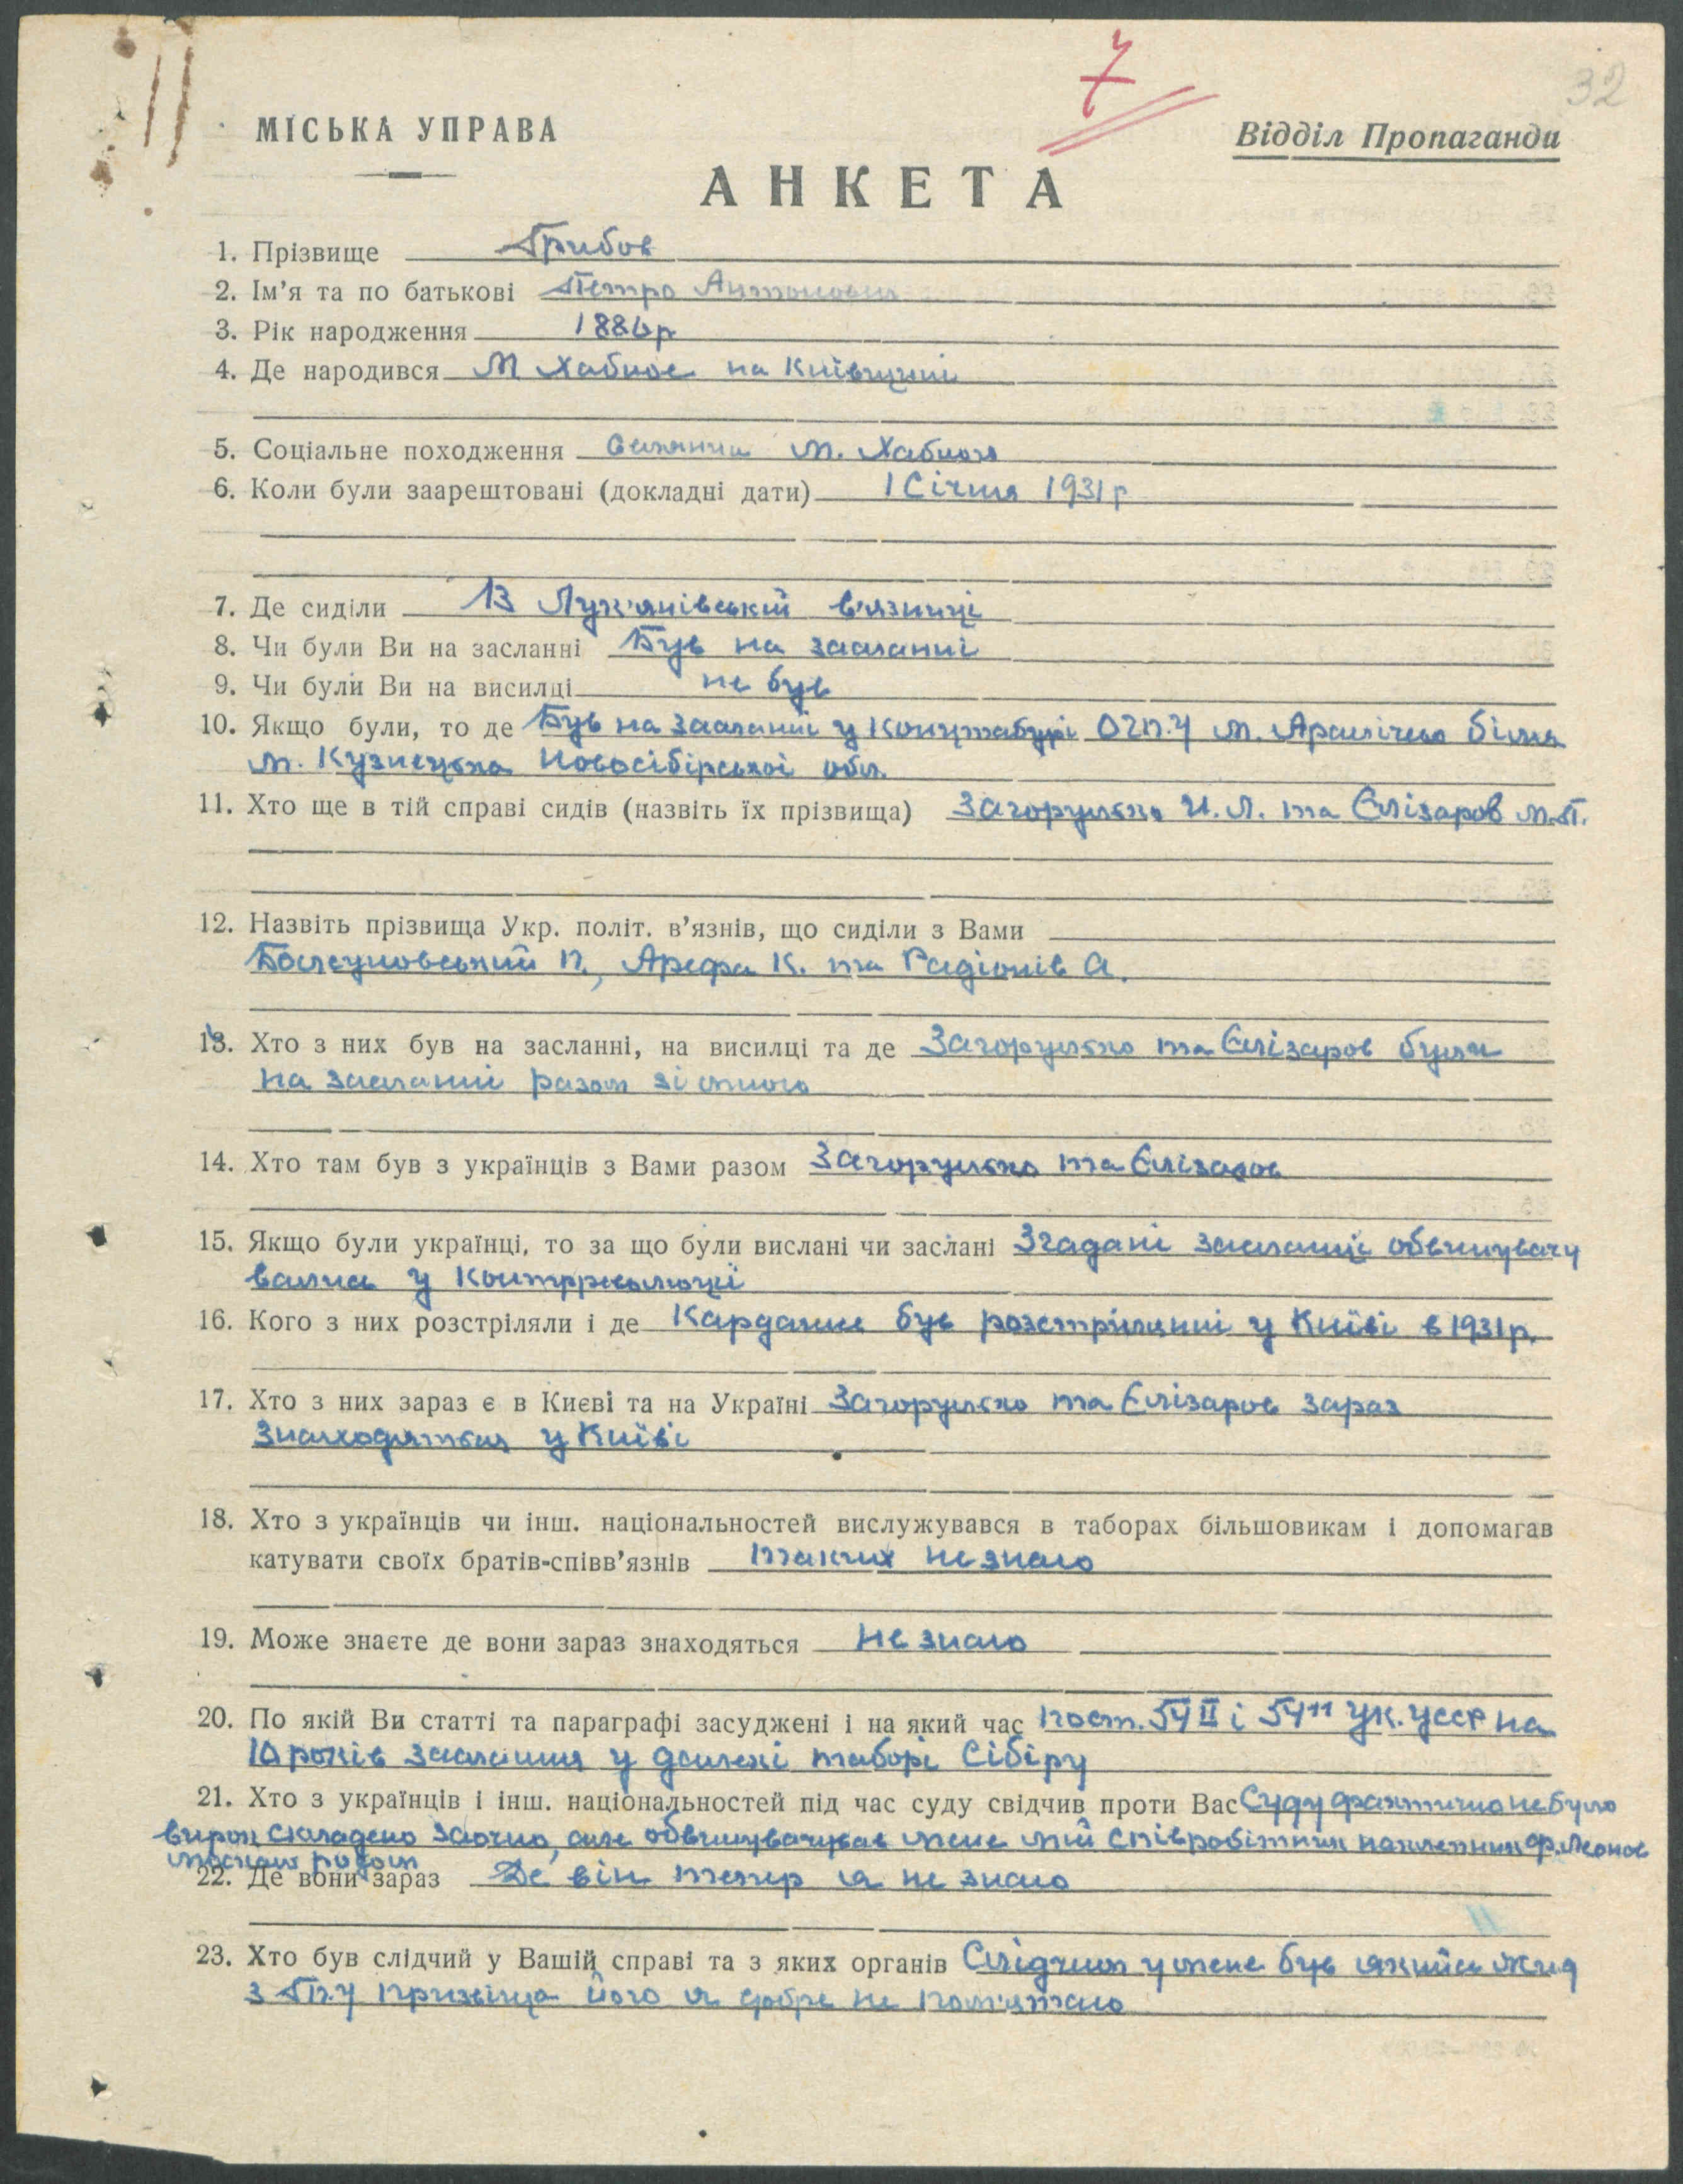 7
32
МІСЬКА УПРАВА
Відділ Пропаганди
АНКЕТА
1. Прізвище Грибов
2. Ім'я та по батькові Петро Антонович
3. Рік народження 1886р
4. Де народився М Хабное на Київщині
5. Соціальне походження Селянин м. Хабноя
6. Коли були заарештовані (докладні дати) 1 Січня 1931р
7. Де сиділи В Лук'янівській в'язниці
8. Чи були Ви на засланні Був на засланні
9. Чи були Ви на висилці не був
10. Якщо були, то де Був на засланні у Концтаборі ОГП.У м. Аралічево біля
м. Кузнецька Новосібірської обл.
11. Хто ще в тій справі сидів (назвіть їх прізвища) Загорулько И. Л. та Єлізаров М.П.
12. Назвіть прізвища Укр. політ. в'язнів, що сиділи з Вами
П, Арефа К. та Радіонів А.
13. Хто з них був на засланні, на висилці та де Загорулько та Єлізаров були
на засланні разом зі мною
14. Хто там був з українців з Вами разом Загорулько та Єлізаров
15. Якщо були українці, то за що були вислані чи заслані Згадані засланці обвинувачу
вались у Контрреволюції
16. Кого з них розстріляли і де був розстріляний у Київі в 1931р.
17. Хто з них зараз є в Києві та на Україні Загорулько та Єлізаров зараз
знаходяться у Київі
18. Хто з українців чи інш. національностей вислужувався в таборах більшовикам і допомагав
катувати своїх братів-співв'язнів таких не знаю
19. Може знаєте де вони зараз знаходяться не знаю
20. По якій Ви статті та параграфі засуджені і на який час по ст. 54 II і 54 11 УК. УССР на
10 років заслання у далекі таборі Сібіру
21. Хто з українців і інш. національностей під час суду свідчив проти Вас Суду фактично не було
вирок складено заочно, але обвинувачував мене мій співробітник наклепник Ф. Леонов
москаль родом
22. Де вони зараз Де він тепер я не знаю
23. Хто був слідчий у Вашій справі та з яких органів Слідчим у мене був якийсь жид
з ГП.У призвіща його я добре не пам'ятаю